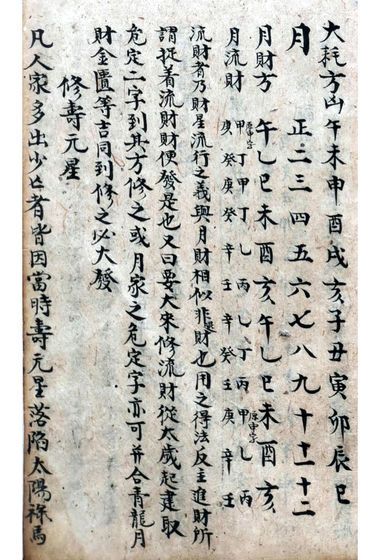 大耗方凶午未申酉戌亥子丑寅卯辰巳
月正二三四五六七八九十十一十二
月財方午乙巳未酉亥午乙巳未酉亥
月流財甲丁甲丁乙丙乙丁丙甲乙丙
庚癸庚癸辛壬辛癸壬庚辛壬
流財者乃財星流行之義與月財相似非財也用之得法反主進財所
謂捉着流財財便發是也又曰要大來修流財從太歲起建取
危定二字到其方修之或月家之危定字亦可并合青龍月
財金匱等吉同到修之必大發
修壽元星
凡人家多出少亡者皆因當時壽元星落陷太陽祿馬